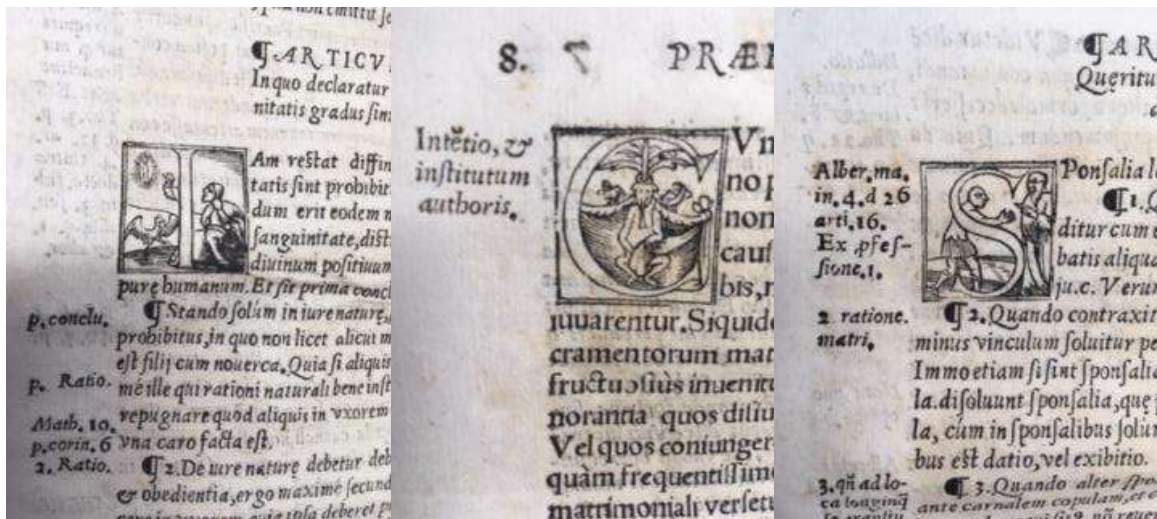 ¶ARTICV
In quo declaratur
nitatis gradus sint
IAm restat diffin
tatis sint prohibit
dum erit eodem
sanguinitate, dist
diuinum positiuum
purè humanum. Et sit prima concl
p. conclu.
¶ Stando solùm in iure naturę,
prohibitus, in quo non licet alicui
est filij cum nouerca. Quia si aliquis
p. Ratio.
me ille qui rationi naturali bene inst
Math. 10.
repugnare quòd aliquis in vxorem
p. corin. 6
vna caro facta est.
2. Ratio.
¶ 2. De iure naturę debetur
& obedientia, ergo maximè secund
8.
PRÆ
Intẽtio, &
institutum
authoris.
CVm
no
non
caus
bis,
iuuarentur. Siquide
cramentorum mat
fructuosiùs
norantia quos
Vel quos coniunger
quàm frequentissime
matrimoniali versetu
¶AR
Quęritu
Alber, ma.
in. 4. d 26
arti, 16.
Ex pfes-
sione, 1.
SPonsalia
¶1. Q
ditur cum
batis aliqua
ju. c. Verum
2. ratione.
matri,
¶ 2. Quando contraxit
minus vinculum soluitur pe
Immo etiam si sint sponsalia
la. disoluunt sponsalia, quę
la, cùm in sponsalibus solùm
bus est datio, vel exibitio.
3. qñ ad lo-
ca longinq̃
¶ 3. Quando alter spo
ante carnalem copulam, et